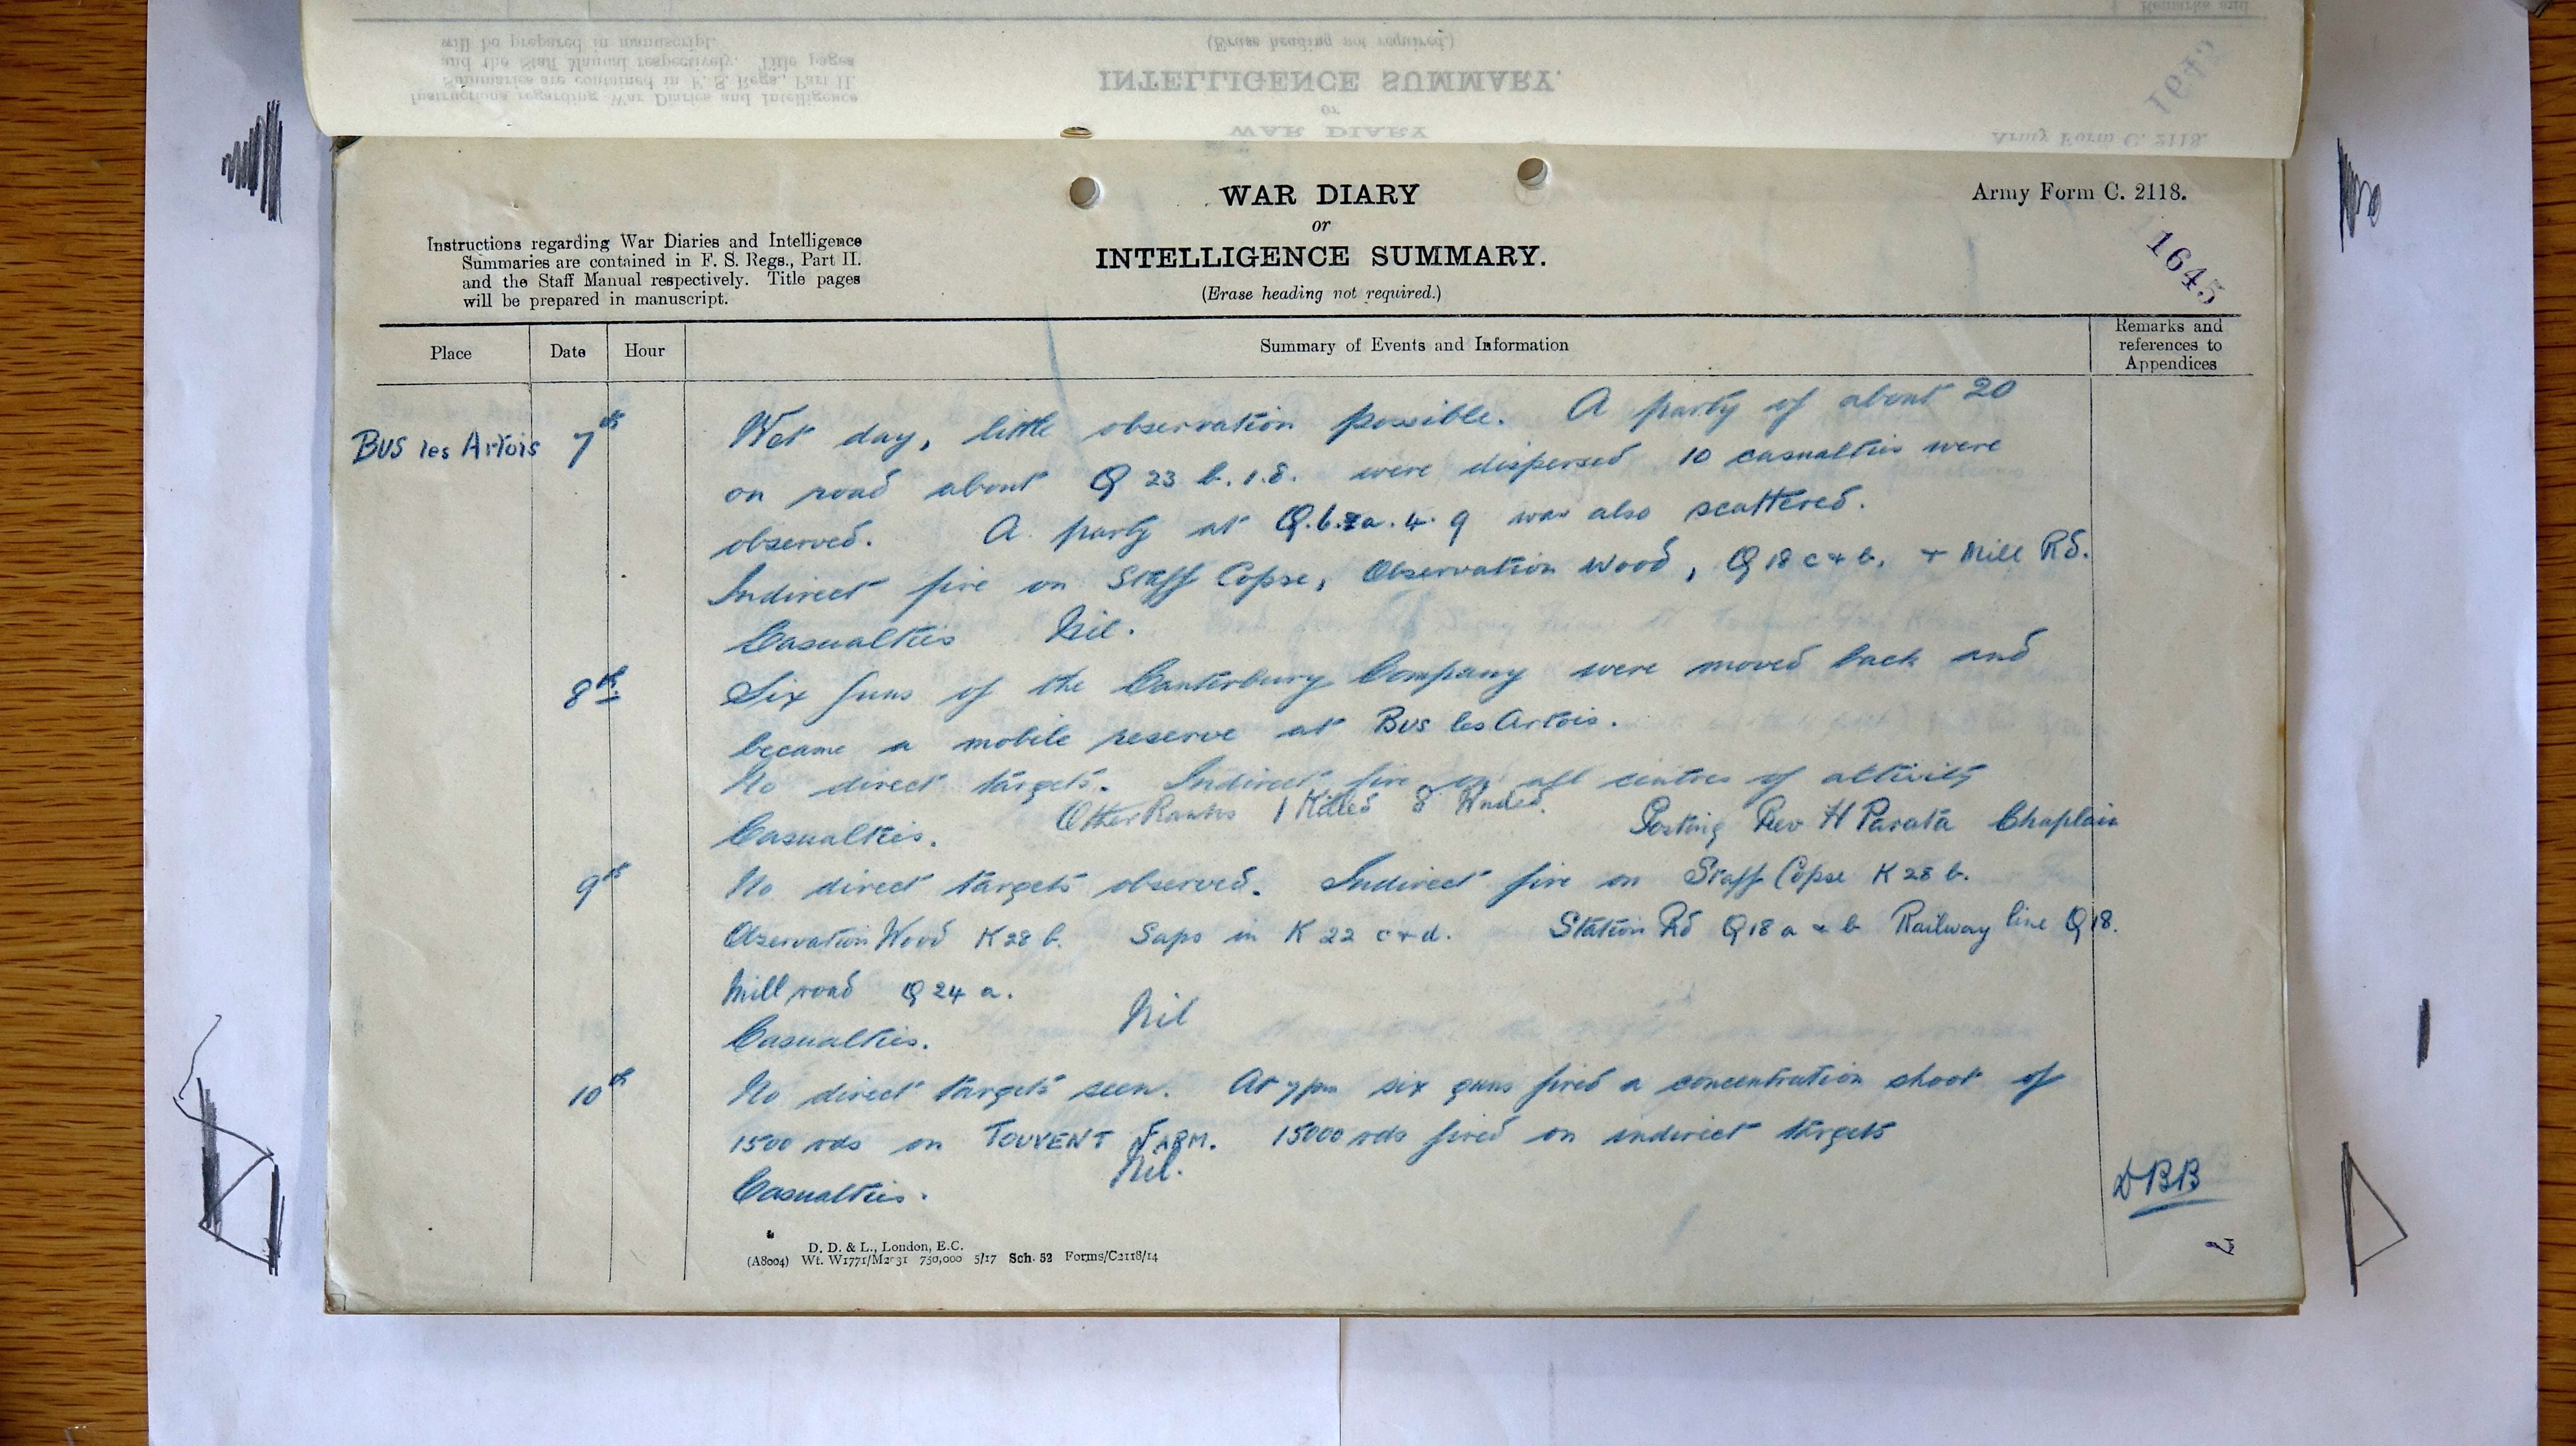 WAR DIARY
or
INTELLIGENCE SUMMARY.
(Erase heading not required.)
Army Form C. 2118.
1645
Instructions regarding War Diaries and Intelligence
Summaries are contained in F. S. Regs., Part II.
and the Staff Manual respectively. Title pages
will be prepared in manuscript.
Place Date Hour Summary of Events and Information Remarks and references to Appendices
BUS les Artois 7th Wet day, little observation possible. A party of about 20
on road about Q 23 b. 1.8. were dispersed 10 casualties were
observed. A party at 4. 9 was also scattered.
Indirect fire on Staff Copse, Observation Wood, Q 18 c & b. & Mill Rd.
Casualties Nil.
8th Six guns of the Canterbury Company were moved back and
became a mobile reserve at Bus les Artois.
No direct targets. Indirect fire on all centres of activity
Casualties. Other Ranks 1 Killed 8 Wnded. Posting Rev H Parata Chaplain
9th No direct targets observed. Indirect fire on Staff Copse K 28 b.
Observation Wood K 28 b. Saps in K 22 c & d. Station Rd Q 18 a & b Railway line Q 18.
Mill road Q 24 a.
Casualties. Nil
10th No direct targets seen. At 7 pm six guns fired a concentration shoot of
1500 rds on TOUVENT FARM. 15000 rds fired on indirect targets
Casualties. Nil.
DBB
D. D. & L., London, E.C.
(A8004) Wt. W1771/M2031 750,000 5/17 Sch. 52 Forms/C2118/14